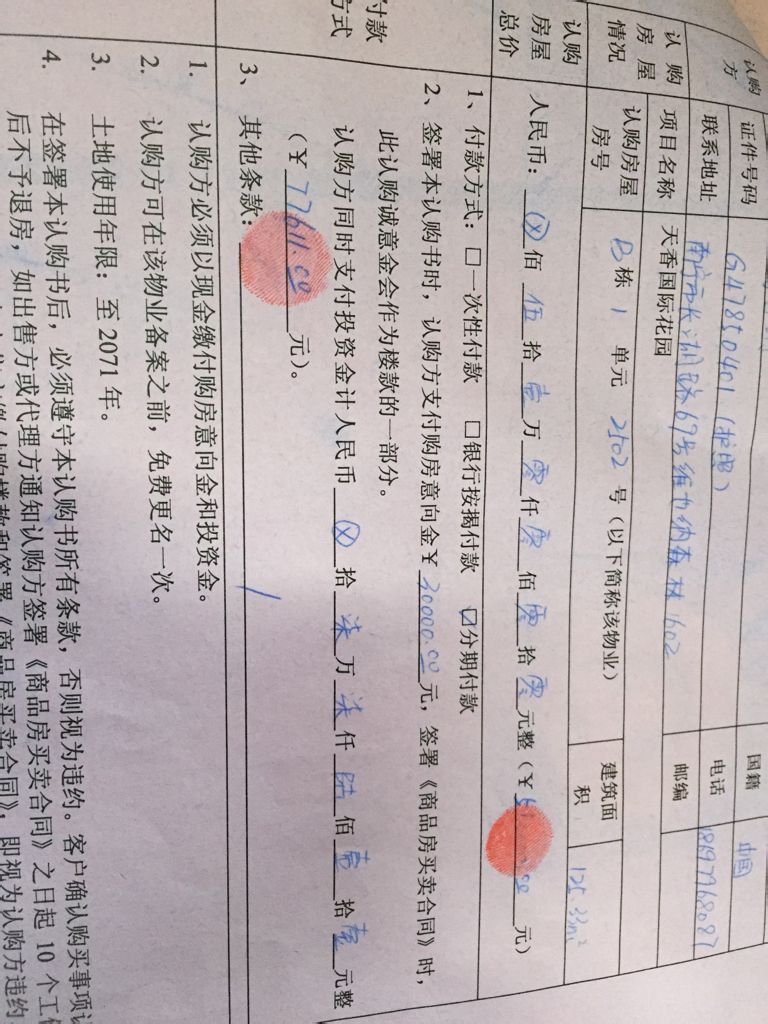 认购方
证件号码 G47850401(护照) 国籍 中国
联系地址 南宁市长湖路67号维也纳森林1602 电话 18197968087
认购房屋情况
项目名称 天香国际花园 邮编
认购房屋房号 B栋 1 单元 2502 号(以下简称该物业) 建筑面积 125.33m²
认购房屋总价
人民币: ⊗ 佰 伍 拾 壹 万 零 仟 零 佰 零 拾 零 元整(¥ 元)
付款方式
1、付款方式:□一次性付款 □银行按揭付款 ☑分期付款
2、签署本认购书时,认购方支付购房意向金¥ 20000.00 元,签署《商品房买卖合同》时,
此认购诚意金会作为楼款的一部分。
认购方同时支付投资金计人民币 ⊗ 拾 柒 万 柒 仟 陆 佰 壹 拾 壹 元整
(¥ 77611.00 元)。
3、其他条款: /
1. 认购方必须以现金缴付购房意向金和投资金。
2. 认购方可在该物业备案之前,免费更名一次。
3. 土地使用年限:至 2071 年。
4. 在签署本认购书后,必须遵守本认购书所有条款,否则视为违约。客户确认购买事项
后不予退房,如出售方或代理方通知认购方签署《商品房买卖合同》之日起 10 个工
缴付购楼款和签署《商品房买卖合同》,即视为认购方违约